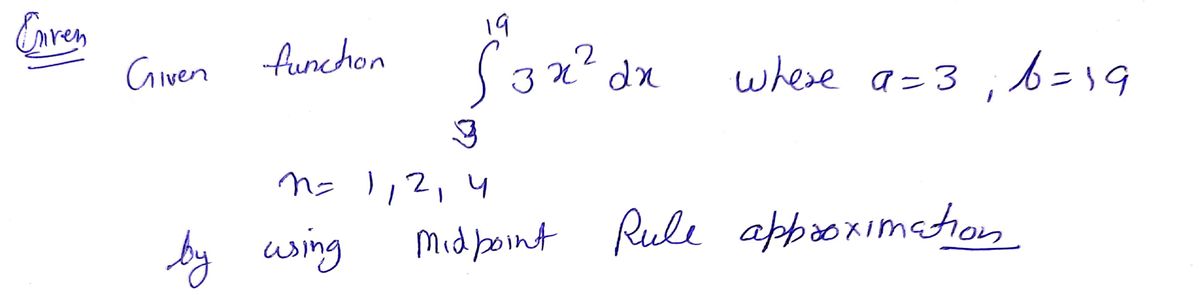 Given
Given function ∫₃¹⁹ 3x² dx where a=3, b=19
n= 1, 2, 4
by using Midpoint Rule approximation